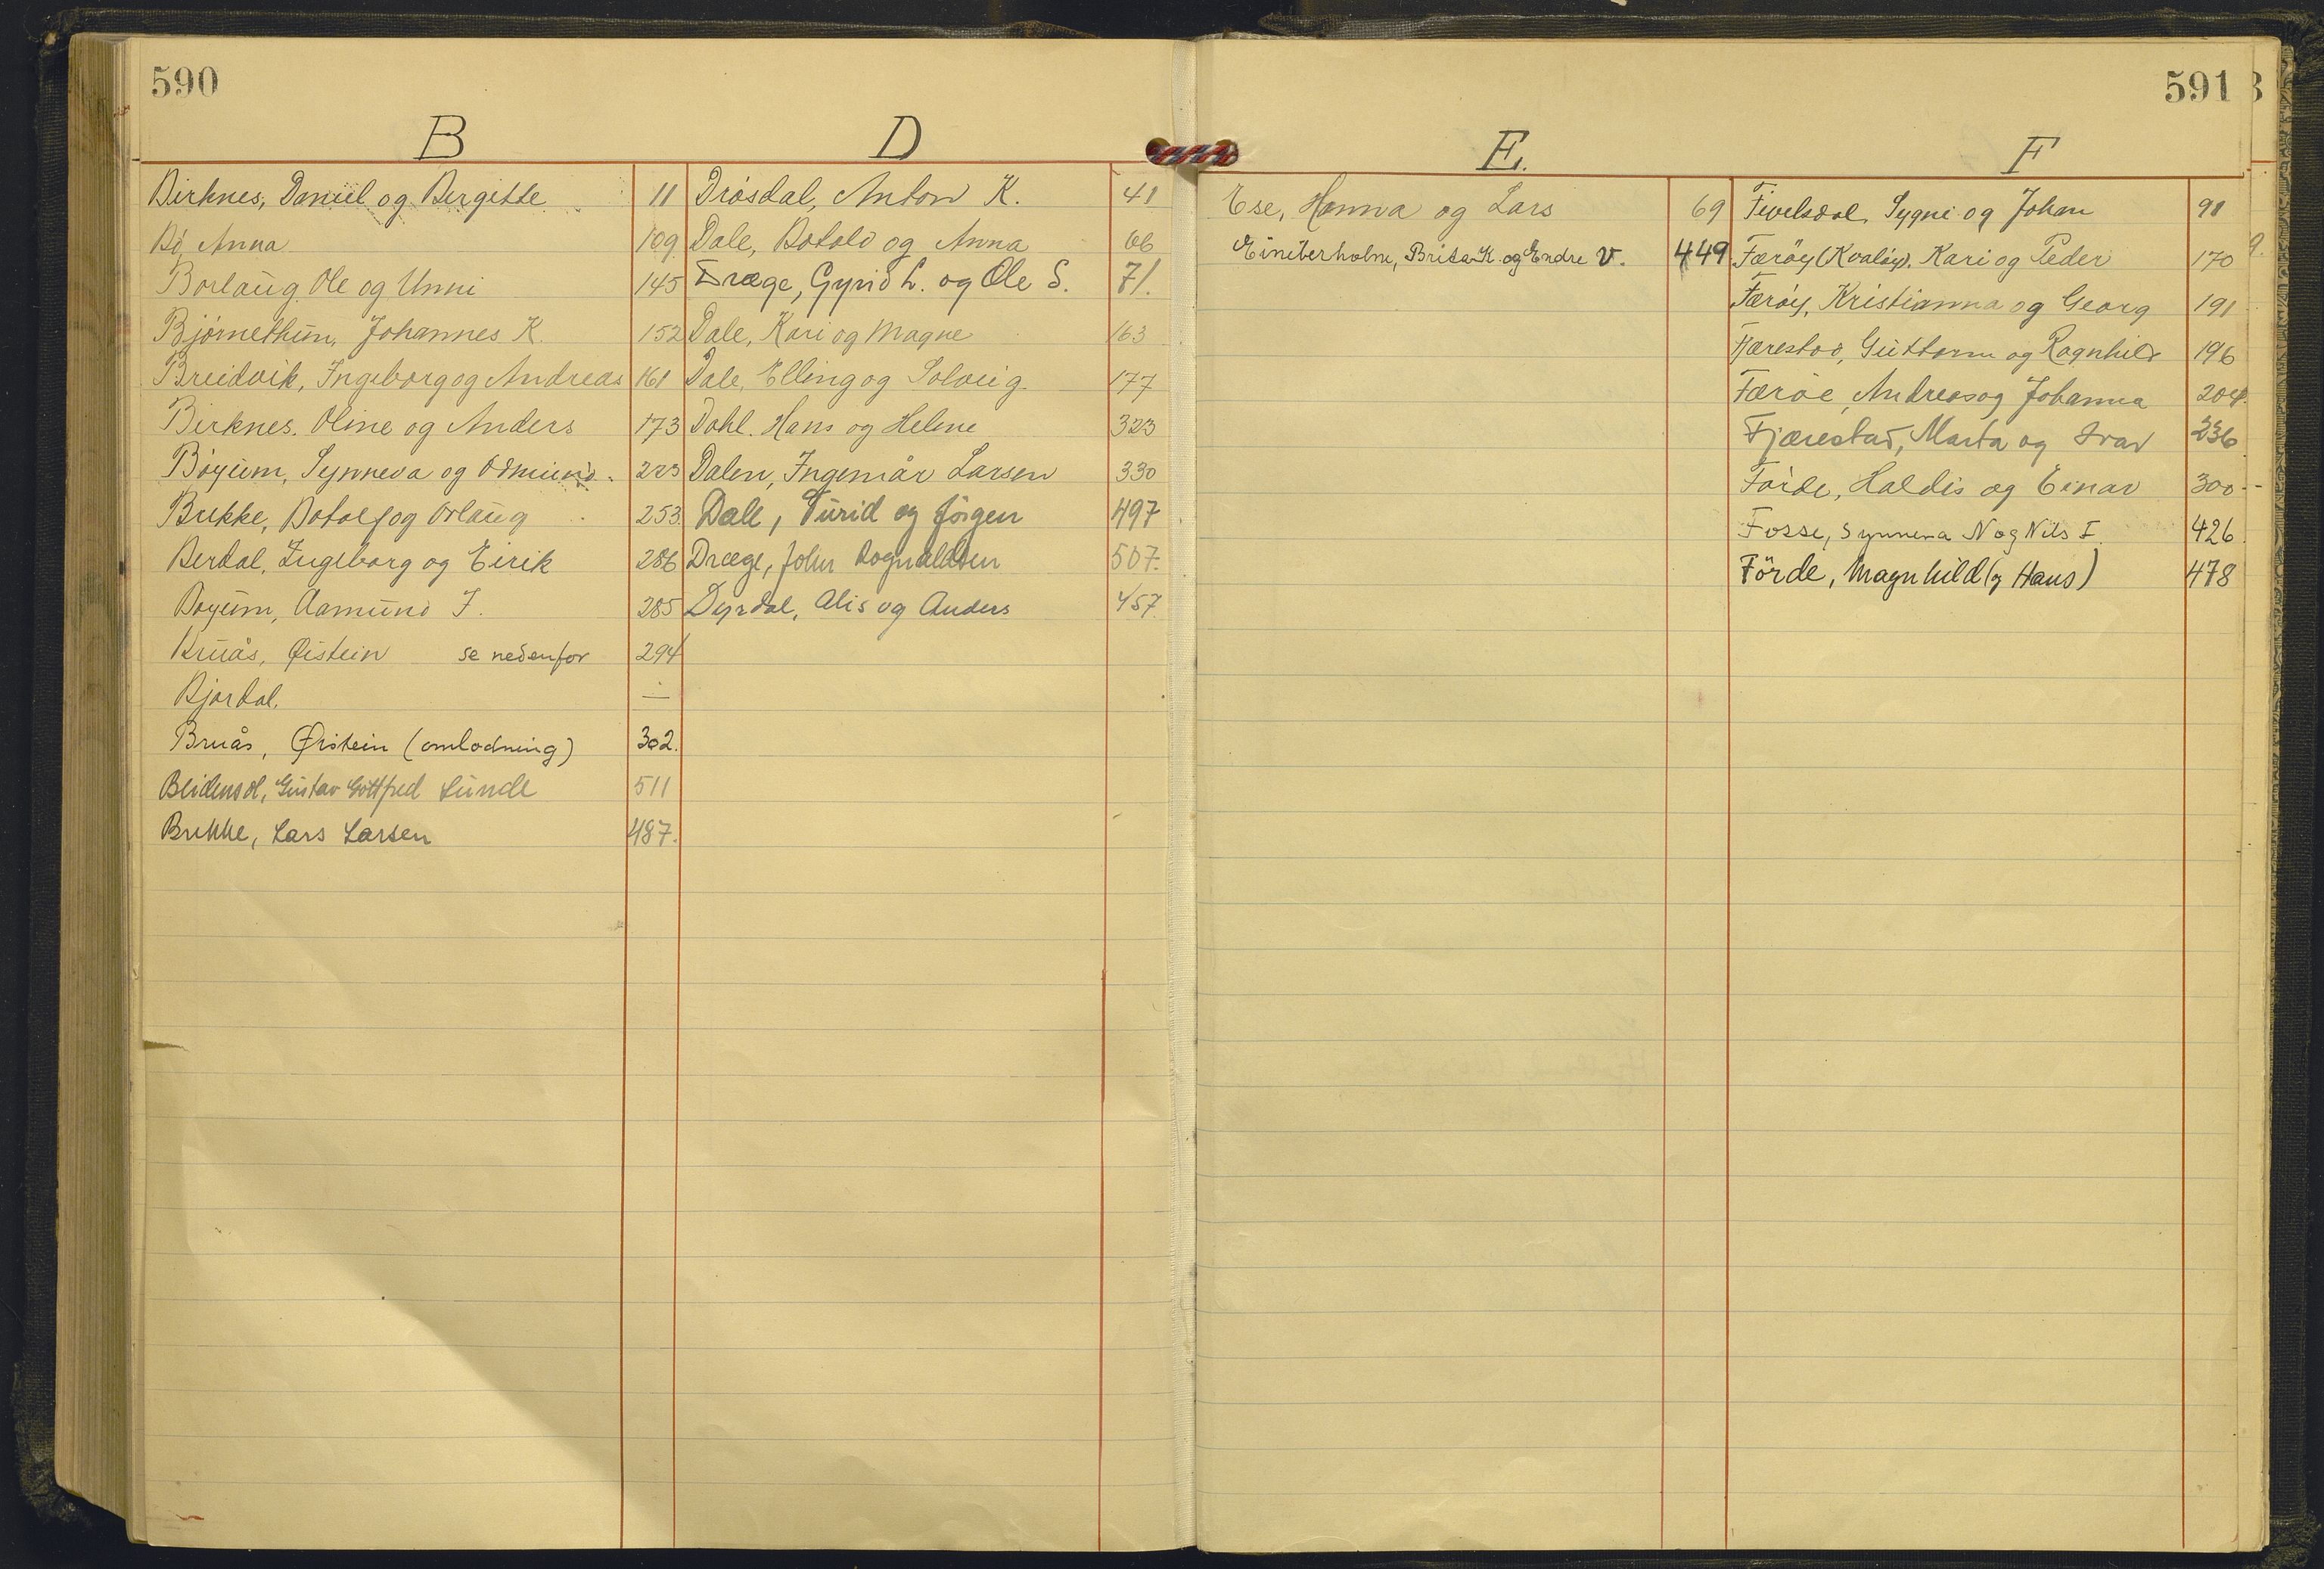 590
B
Birknes, Daniel og Bergitte 11
Bö, Anna 109
Borlaug, Ole og Unni 145
Björnethun, Johannes K. 152
Breidvik, Ingeborg og Andreas 161
Birknes, Oline og Anders 173
Böyum, Synneva og Odmund 223
Brekke, Botolf og Orlaug 253
Berdal, Ingeborg og Eirik 286
Böyum, Aamund I. 285
Bruås, Øistein se nedenfor 294
Bjordal. —
Bruås, Øistein (omlodning) 302.
Bleidensol, Gustav Gottfred Lunde 511
Brekke, Lars Larsen 487.
D
Drösdal, Anton K. 41
Dale, Botolv og Anna 66
Dræge, Gyrid L. og Ole S. 71.
Dale, Kari og Magne 163
Dale, Elling og Solveig 177
Dahl. Hans og Helene 323
Dalen, Ingemår Larsen 330
Dale, Turid og Jörgen 497
Dræge, John Rognaldsen 507.
Dyrdal, Alis og Anders 457.
591
E.
Ese, Hanna og Lars 69
Eineterholm, Brita K. og Endre V. 449
F
Fivelsdal, Sygni og Johan 91
Færöy (Kvalöy), Kari og Peder 170
Færöy, Kristianna og Georg 191
Fjærestad, Guttorm og Ragnhild 196
Færöe, Andreas og Johanna 204.
Fjærestad, Marta og Ivar 236
Förde, Haldis og Einar 300
Fosse, Synneva N og Nils I. 426
Förde, Magnhild (og Hans) 478